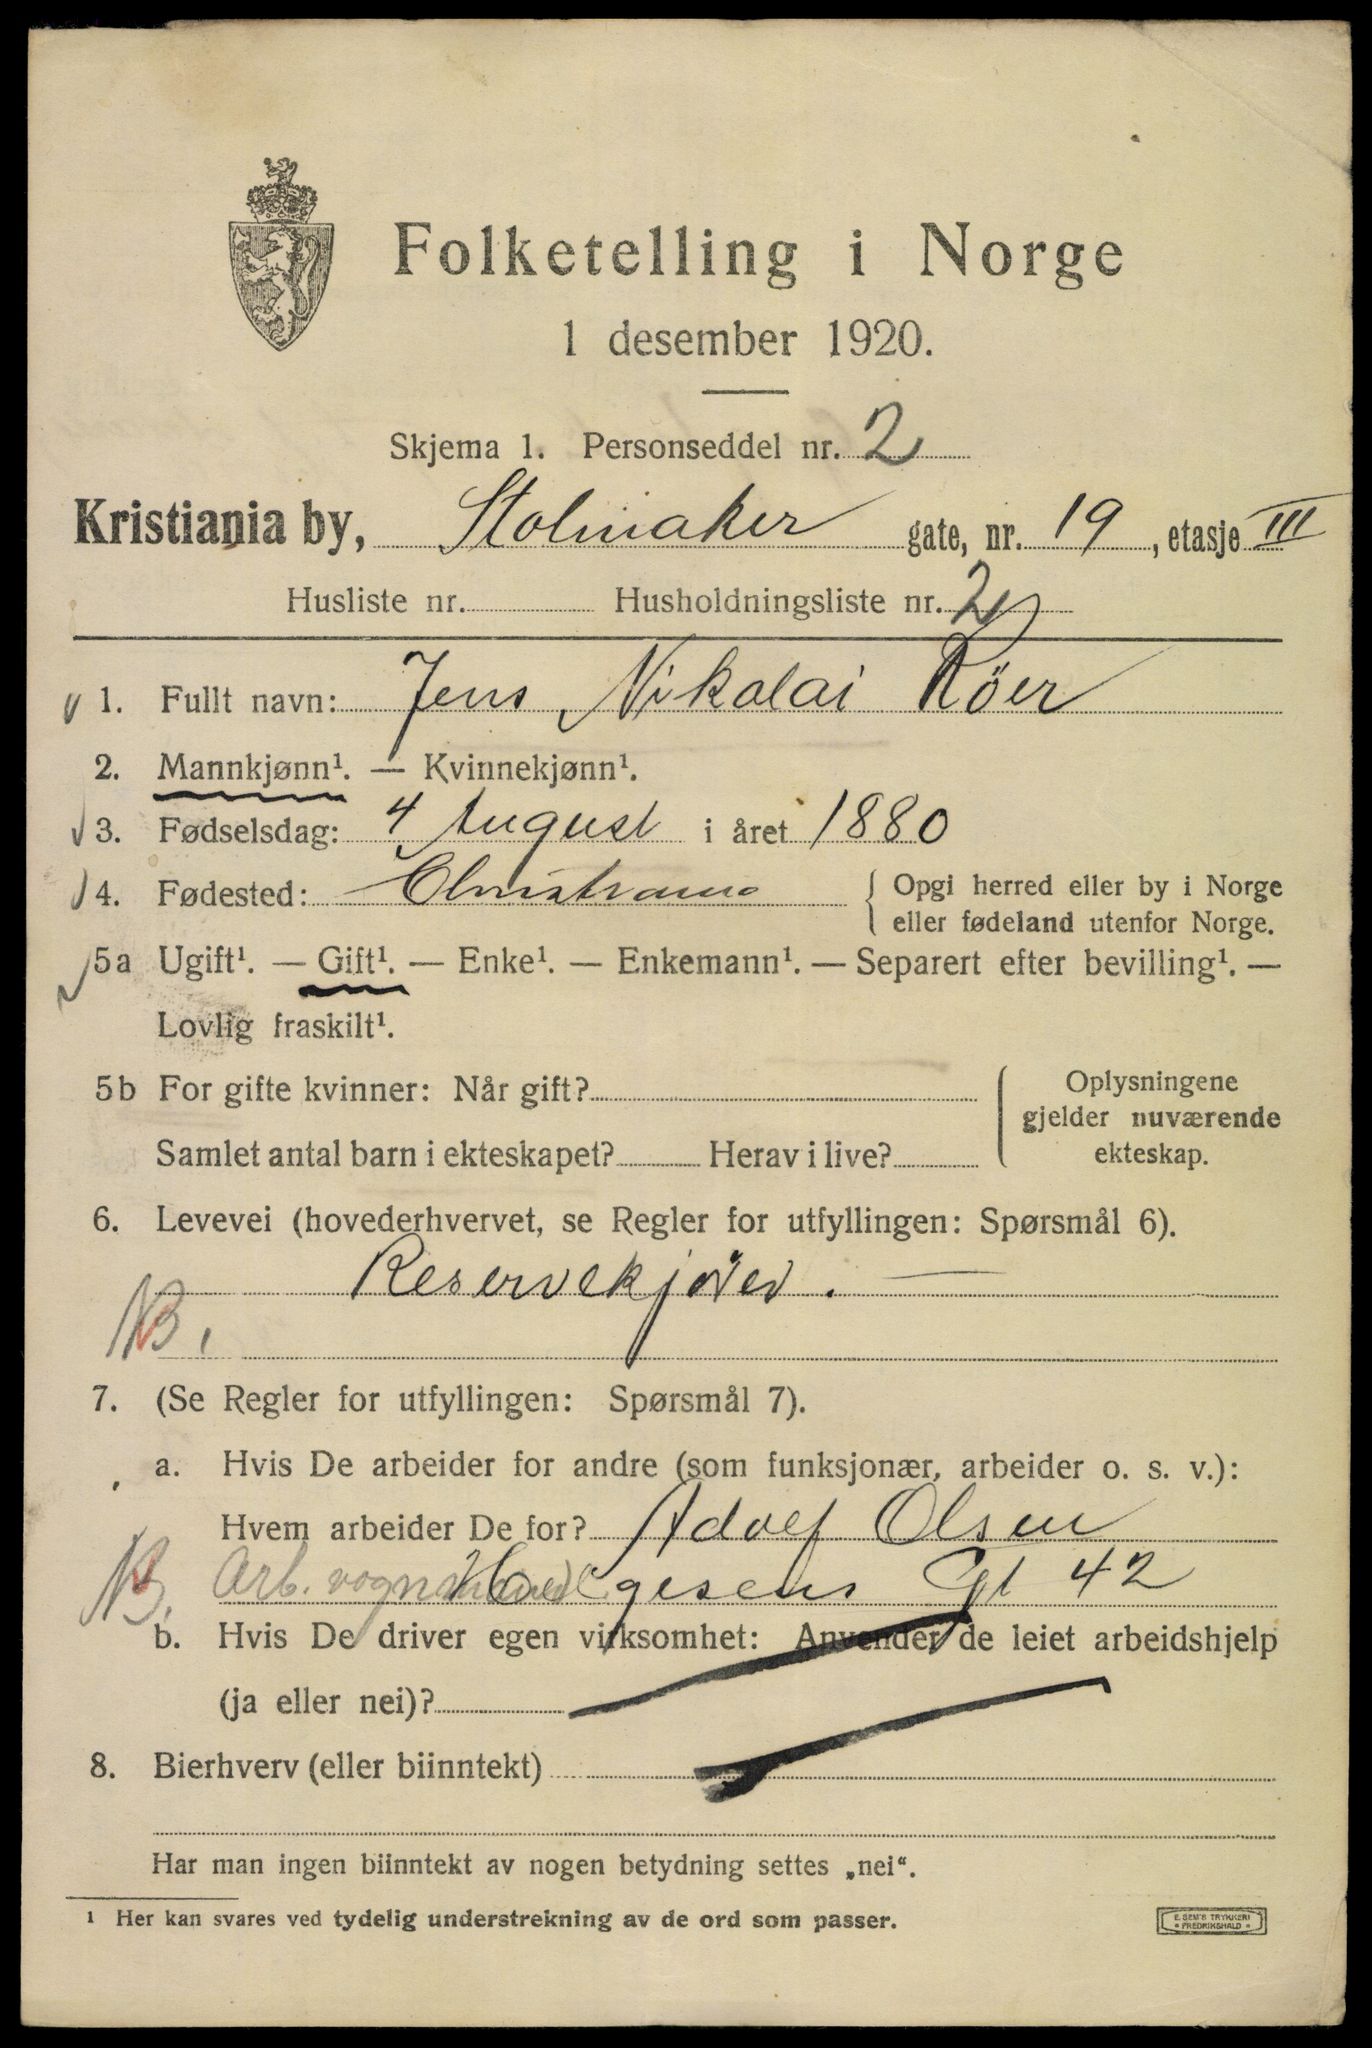 Folketelling i Norge
1 desember 1920.
Skjema 1. Personseddel nr. 2
Kristiania by, Stolmaker gate, nr. 19, etasje III
Husliste nr. Husholdningsliste nr. 2
1. Fullt navn: Jens Nikolai Röer
2. Mannkjønn¹. — Kvinnekjønn¹.
3. Fødselsdag: 4 August i året 1880
4. Fødested: Christiania { Opgi herred eller by i Norge
eller fødeland utenfor Norge.
5a Ugift¹. — Gift¹. — Enke¹. — Enkemann¹. — Separert efter bevilling¹. —
Lovlig fraskilt¹.
5b For gifte kvinner: Når gift? Oplysningene
gjelder nuværende
Samlet antal barn i ekteskapet? Herav i live? ekteskap.
6. Levevei (hovederhvervet, se Regler for utfyllingen: Spørsmål 6).
Reservekjører. —
NB.
7. (Se Regler for utfyllingen: Spørsmål 7).
a. Hvis De arbeider for andre (som funksjonær, arbeider o. s. v.):
Hvem arbeider De for? Adolf Olsen
NB. Arb. vognmand Helgesens Gt 42
b. Hvis De driver egen virksomhet: Anvender de leiet arbeidshjelp
(ja eller nei)?
8. Bierhverv (eller biinntekt)
Har man ingen biinntekt av nogen betydning settes „nei“.
¹ Her kan svares ved tydelig understrekning av de ord som passer.
E. SEM'S TRYKKERI
* FREDRIKSHALD *